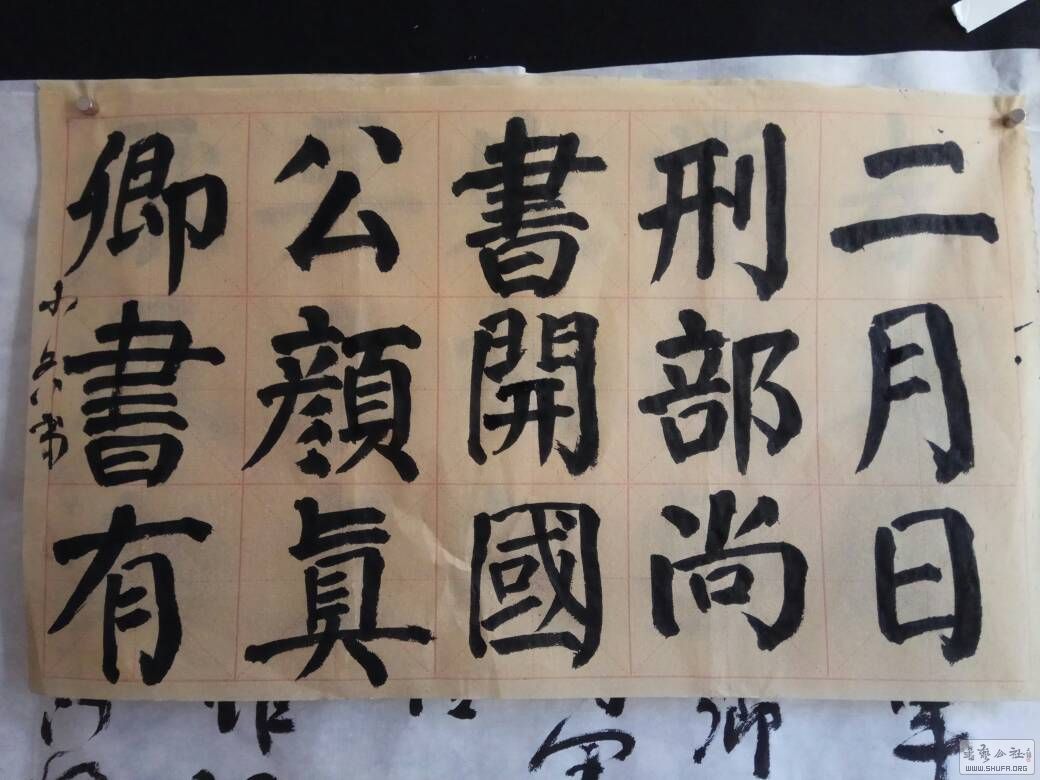 二月日
刑部尚
書開國
公顏真
卿書有
卿
書艺公社
WWW.SHUFA.ORG